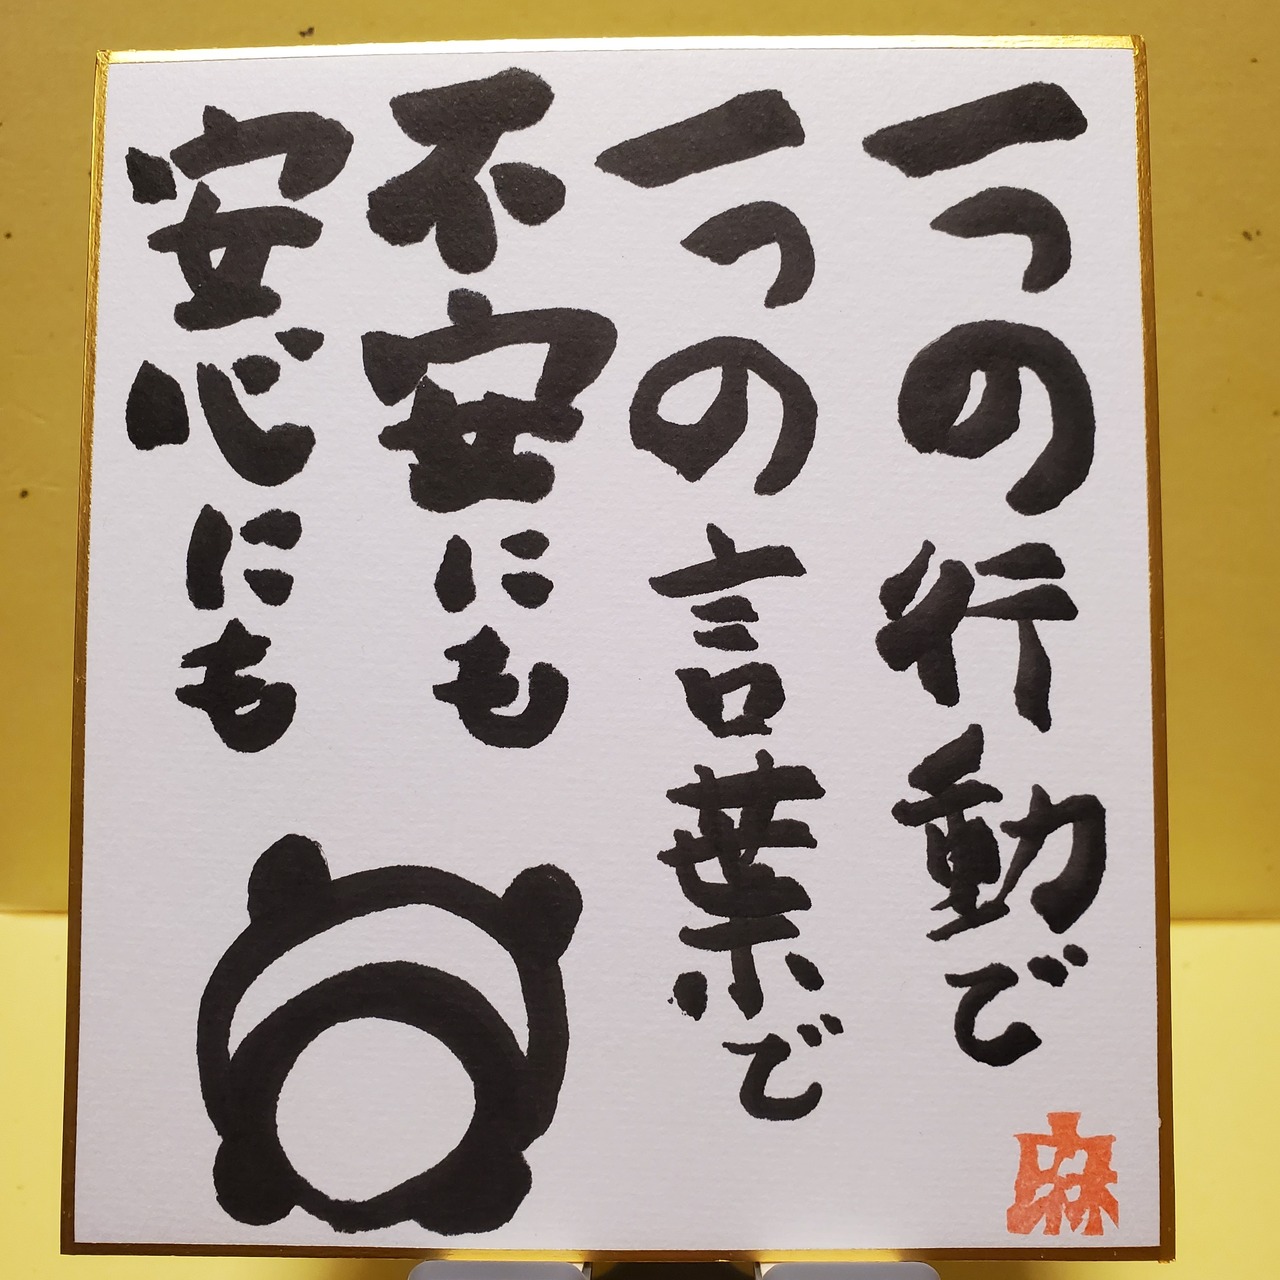 一つの行動で
一つの言葉で
不安にも
安心にも
麻